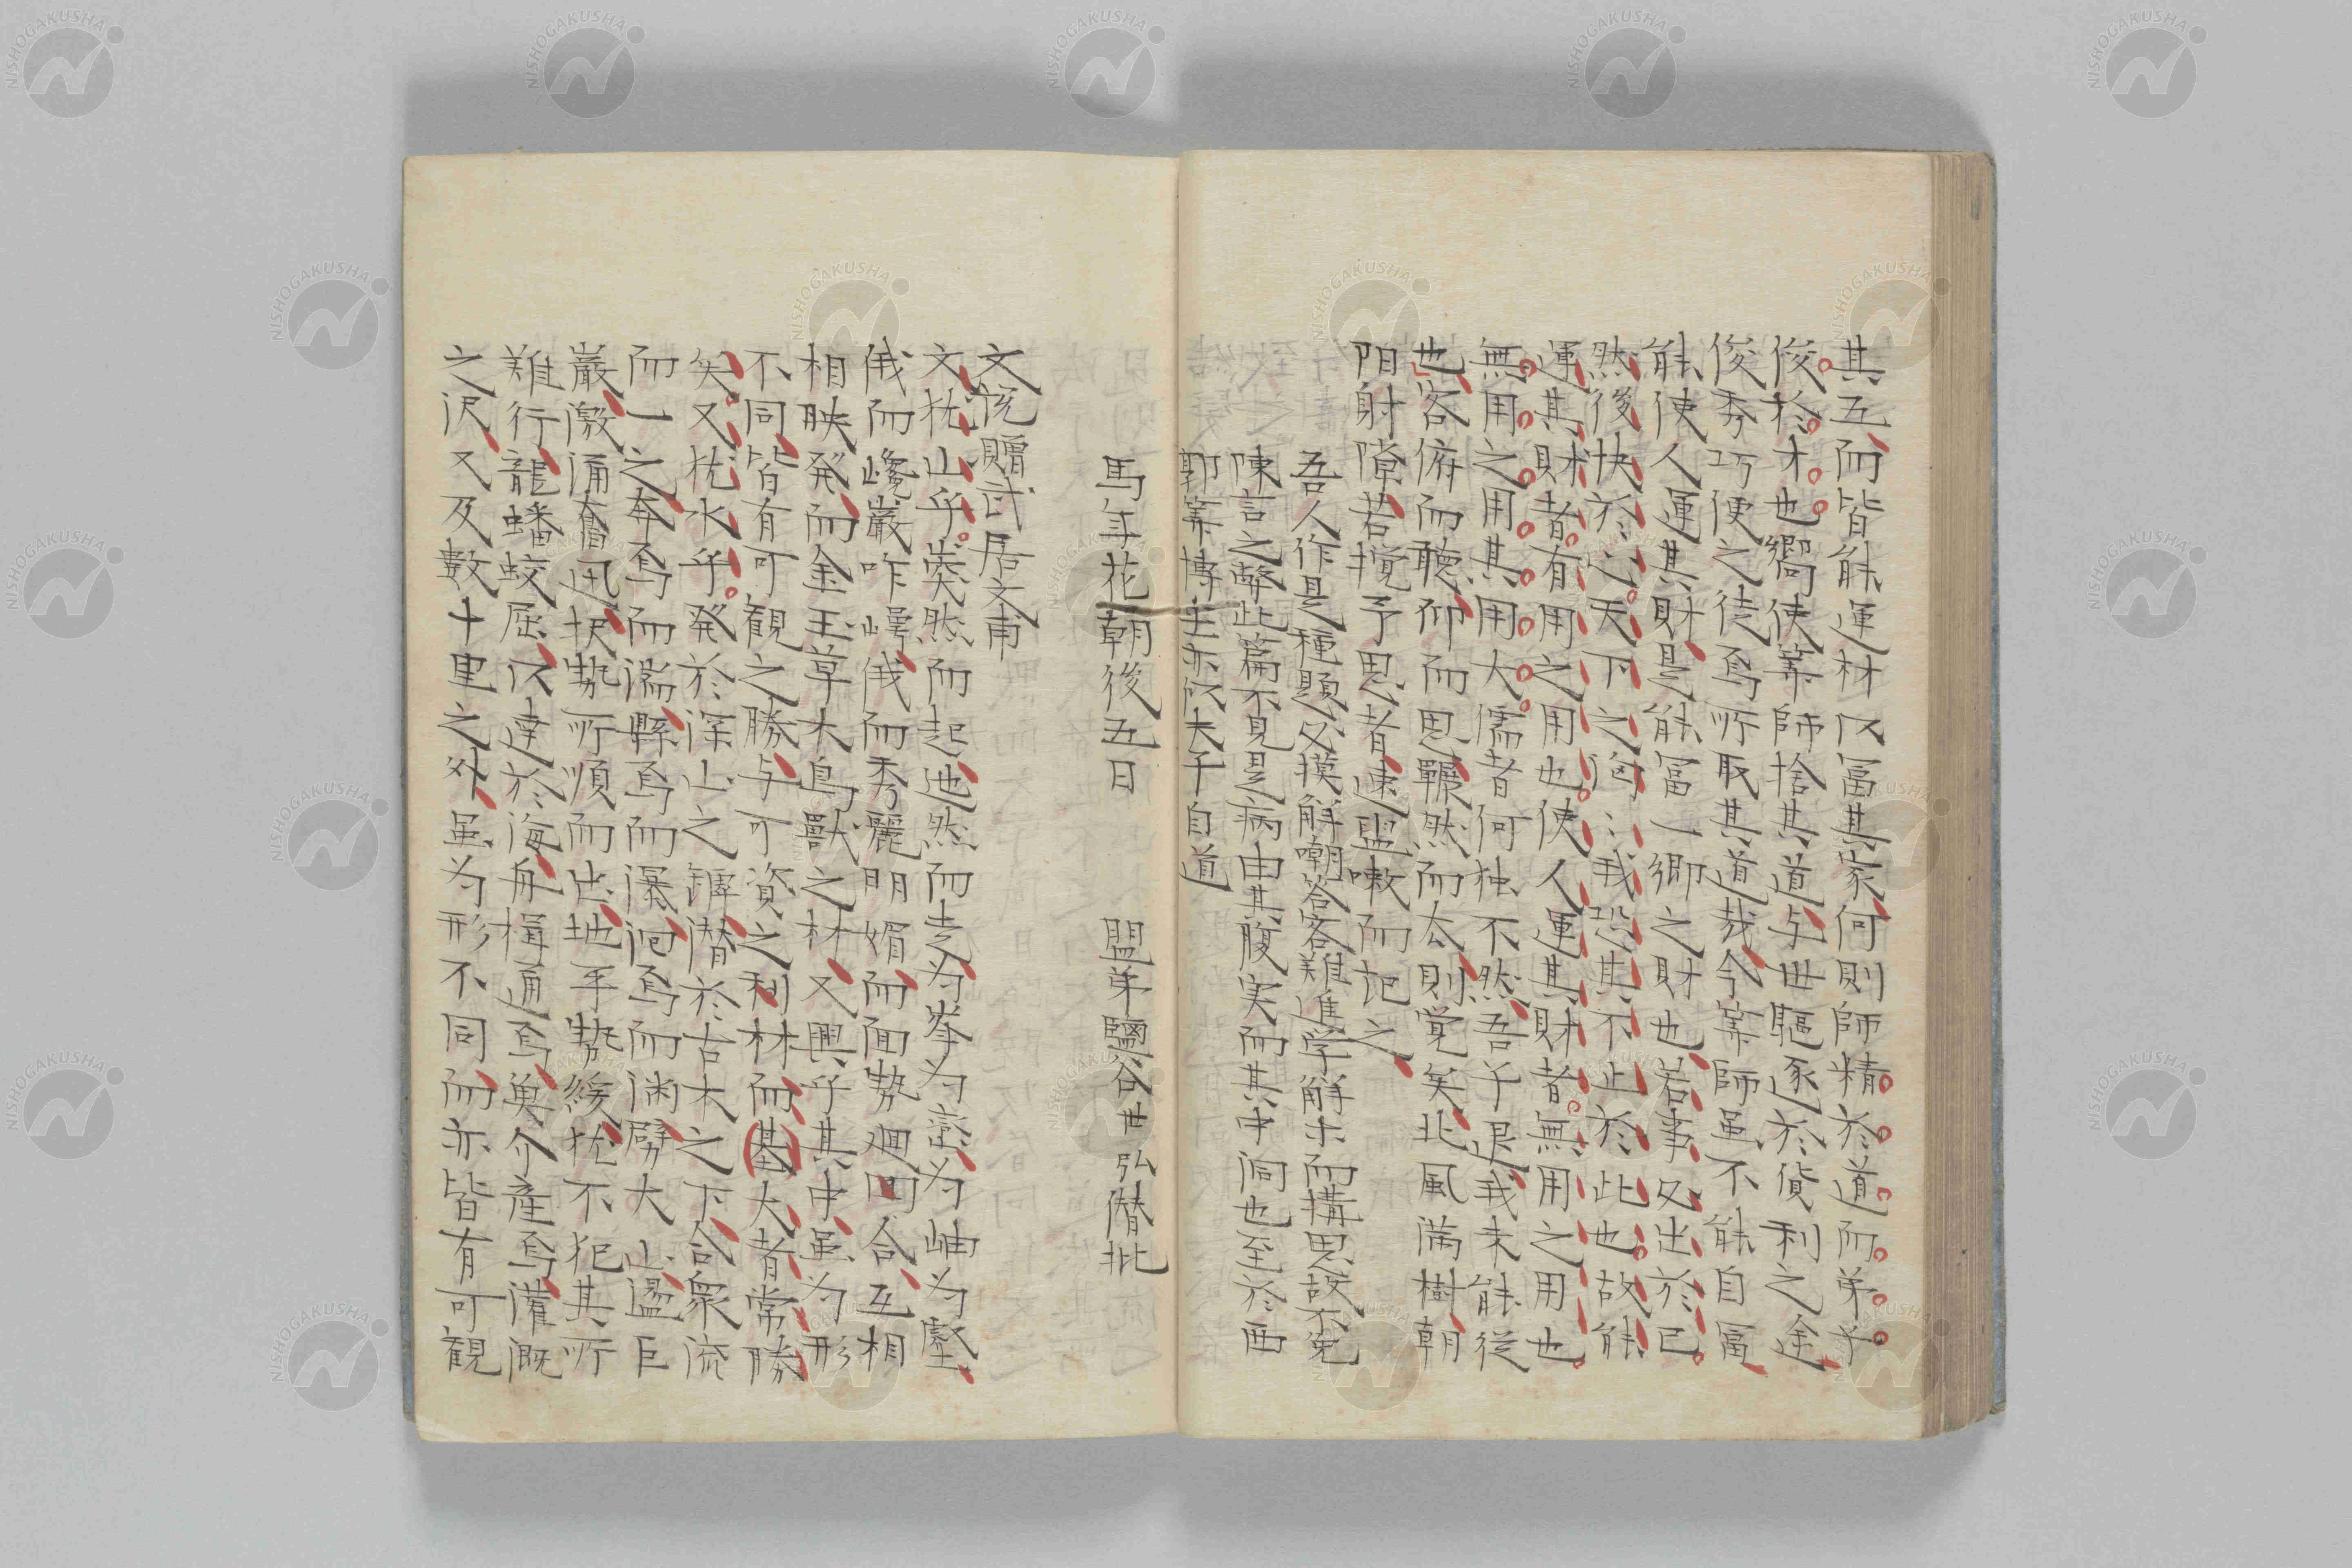 其五而皆能運材以富其家何則師精於道而弟子
俊於才也嚮使筭師捨其道与世驅逐於貨利之途
俊秀巧便之徒焉所取其道哉今筭師虽不能自富
能使人運其財是能富一鄉之財也若事必出於已
然後快於心天下之洶〻我恐其不止於此也故能
運其財者有用之用也使人運其財者無用之用也
無用之用其用大儒者何独不然吾子退我未能従
也客俯而聴仰而思囅然而太則覚矣北風満樹朝
陽射隙若撹予思者速盥嗽而記之
吾人作是種題必摸解嘲答客難進学解木而搆思故不免
陳言之弊此篇不見是病由其腹実而其中洞也至於西
郭筭博士亦以夫子自道
馬年花朝後五日 盟弟鹽谷世弘僭批
文説贈武居文甫
文犹山乎突然而起迤然而走为峯为巒为岫为壑
俄而巉巌咋嶂俄而秀麗明媚而面勢廻回合互相
相映発而金玉草木鳥獣之材又興乎其中虽为形
不同皆有可観之勝与可資之利材而基大者常勝
矣又犹水乎発於深山之罅潜於古木之下合衆流
而一之奔焉而湍縣焉而瀑洄焉而渕劈大山盪巨
巌激涌奮迅択勢所順而出地平勢緩犹不犯其所
難行龍蟠蛟屈以達於海舟楫通焉魚介産焉灌溉
之沢又及数十里之外虽为形不同而亦皆有可観
NISHOGAKUSHA